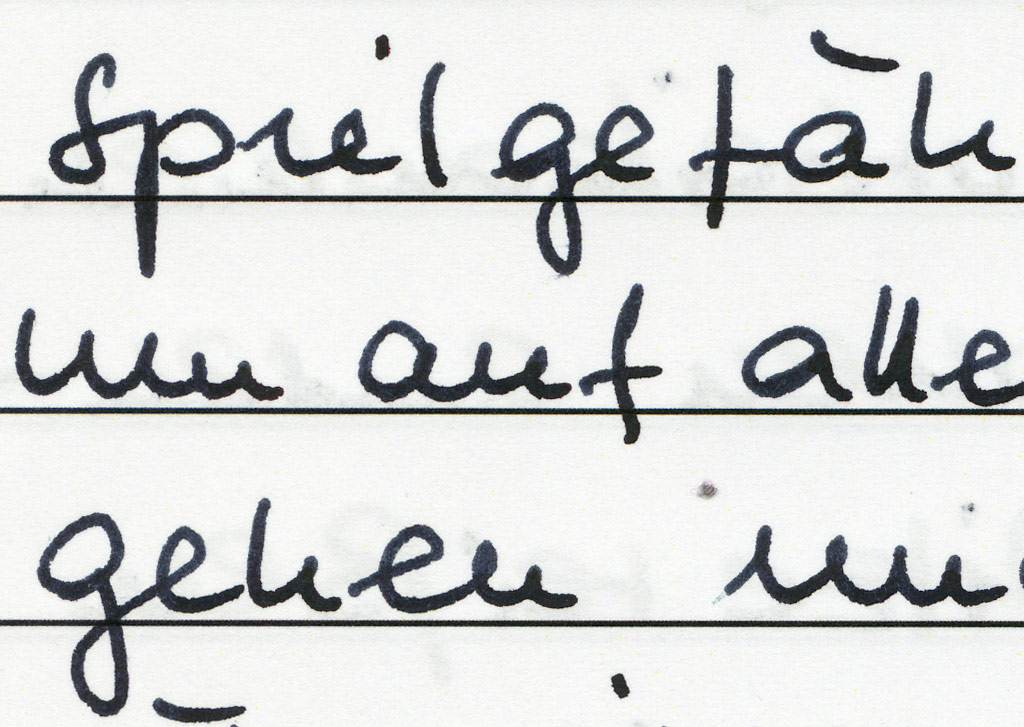 Spielgefäh
um auf alle
gehen und